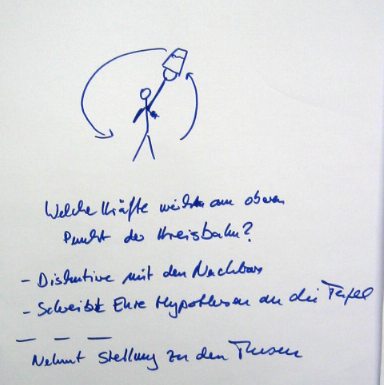 Welche Kräfte wirken am oberen
Punkt der Kreisbahn?
- Diskutiere mit den Nachbar
- Schreibt Eure Hypothesen an die Tafel
Nehmt Stellung zu den Thesen